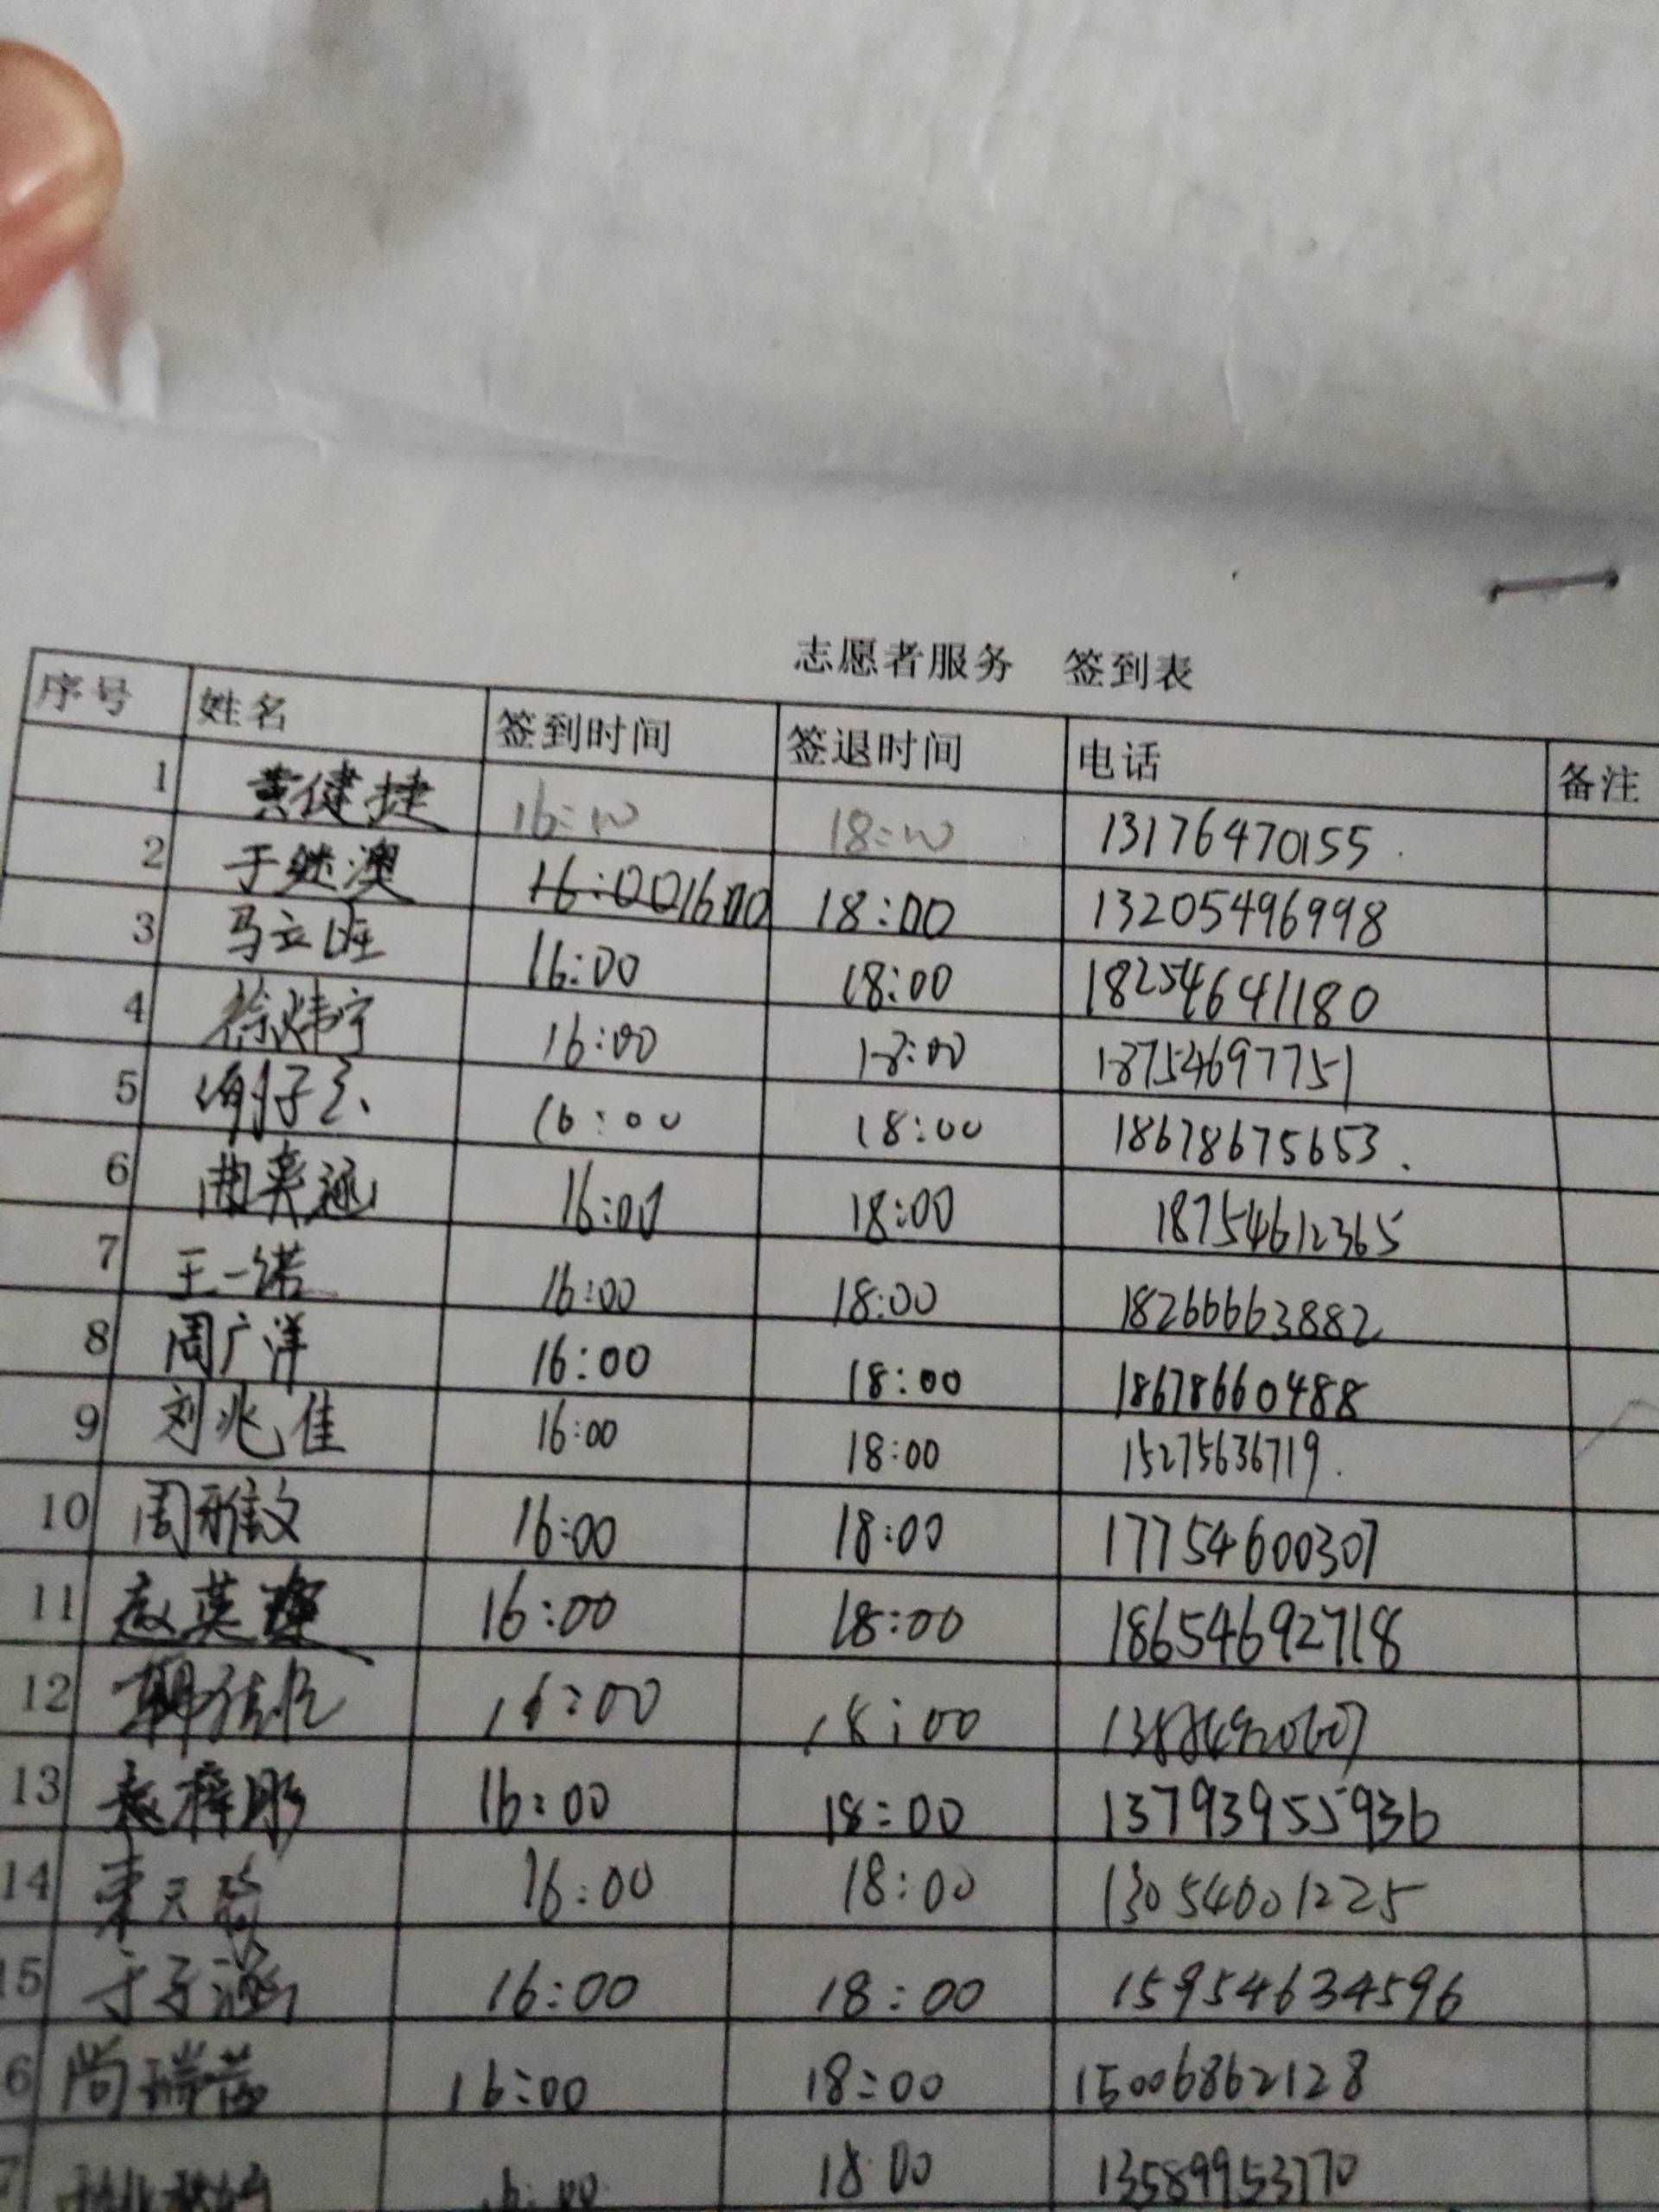 志愿者服务 签到表
序号 姓名 签到时间 签退时间 电话 备注
1 黄健捷 16:00 18:00 13176470155
2 于继澳 16:00 1600 18:00 13205496998
3 马立旺 16:00 18:00 18254641180
4 徐炜宁 16:00 18:00 18754697751
5 16:00 18:00 18678675653
6 曲奕涵 16:00 18:00 18754612365
7 王一诺 16:00 18:00 18266663882
8 周广洋 16:00 18:00 18678660488
9 刘兆佳 16:00 18:00 15275636719
10 周雅文 16:00 18:00 17754600307
11 赵英 16:00 18:00 18654692718
12 16:00 18:00
13 赵梓彤 16:00 18:00 13793955936
14 天 16:00 18:00 13054601225
15 于子涵 16:00 18:00 15954634596
6 尚瑞 16:00 18:00 15006862128
7 18:00 13589953770